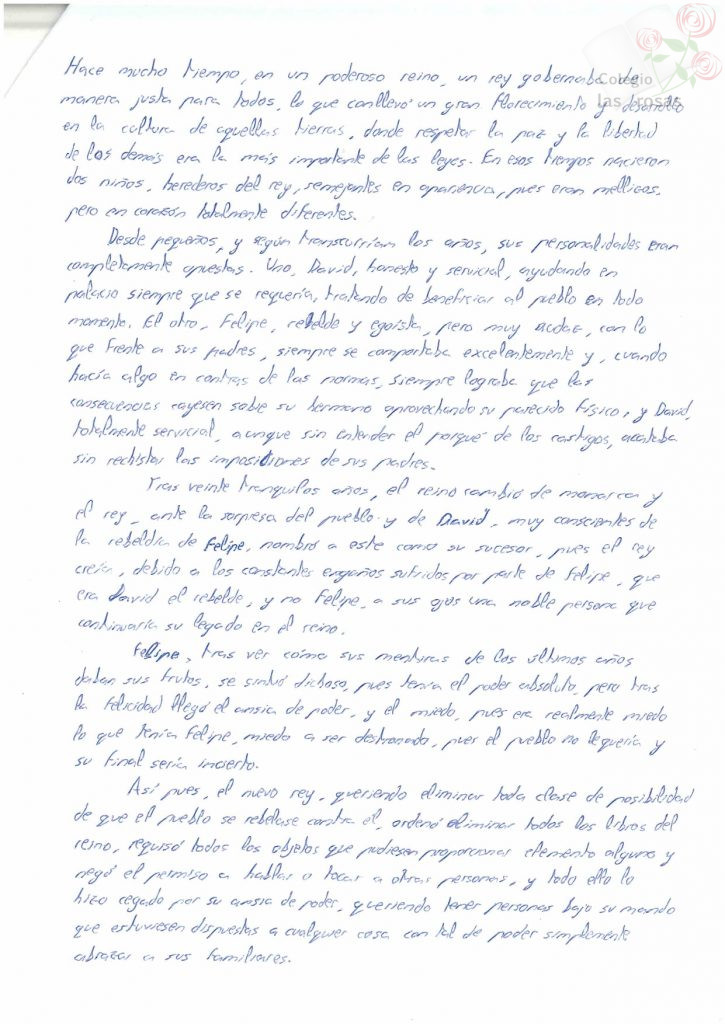 Colegio
las rosas
Hace mucho tiempo, en un poderoso reino, un rey gobernaba de
manera justa para todos, lo que conllevó un gran florecimiento y desarrollo
en la cultura de aquellas tierras, donde respetar la paz y la libertad
de los demás era la más importante de las leyes. En esos tiempos nacieron
dos niños, herederos del rey, semejantes en apariencia, pues eran mellizos,
pero en corazón totalmente diferentes.
Desde pequeños, y según transcurrían los años, sus personalidades eran
completamente opuestas. Uno, David, honesto y servicial, ayudando en
palacio siempre que se requería, tratando de beneficiar al pueblo en todo
momento. El otro, Felipe, rebelde y egoísta, pero muy audaz, con lo
que frente a sus padres, siempre se comportaba excelentemente y, cuando
hacía algo en contras de las normas, siempre lograba que las
consecuencias cayesen sobre su hermano aprovechando su parecido físico, y David,
totalmente servicial, aunque sin entender el porqué de los castigos, acataba
sin rechistar las imposiciones de sus padres.
Tras veinte tranquilos años, el reino cambió de monarca y
el rey, ante la sorpresa del pueblo y de David, muy conscientes de
la rebeldía de Felipe, nombró a este como su sucesor, pues el rey
creía, debido a los constantes engaños sufridos por parte de Felipe, que
era David el rebelde, y no Felipe, a sus ojos una noble persona que
continuaría su legado en el reino.
Felipe, tras ver cómo sus mentiras de los últimos años
daban sus frutos, se sintió dichoso, pues tenía el poder absoluto, pero tras
la felicidad llegó el ansia de poder, y el miedo, pues era realmente miedo
lo que tenía Felipe, miedo a ser destronado, pues el pueblo no le quería y
su final sería incierto.
Así pues, el nuevo rey, queriendo eliminar toda clase de posibilidad
de que el pueblo se rebelase contra él, ordenó eliminar todos los libros del
reino, requisó todos los objetos que pudiesen proporcionar elemento alguno y
negó el permiso a hablar o tocar a otras personas, y todo ello lo
hizo cegado por su ansia de poder, queriendo tener personas bajo su mando
que estuviesen dispuestas a cualquier cosa con tal de poder simplemente
abrazar a sus familiares.